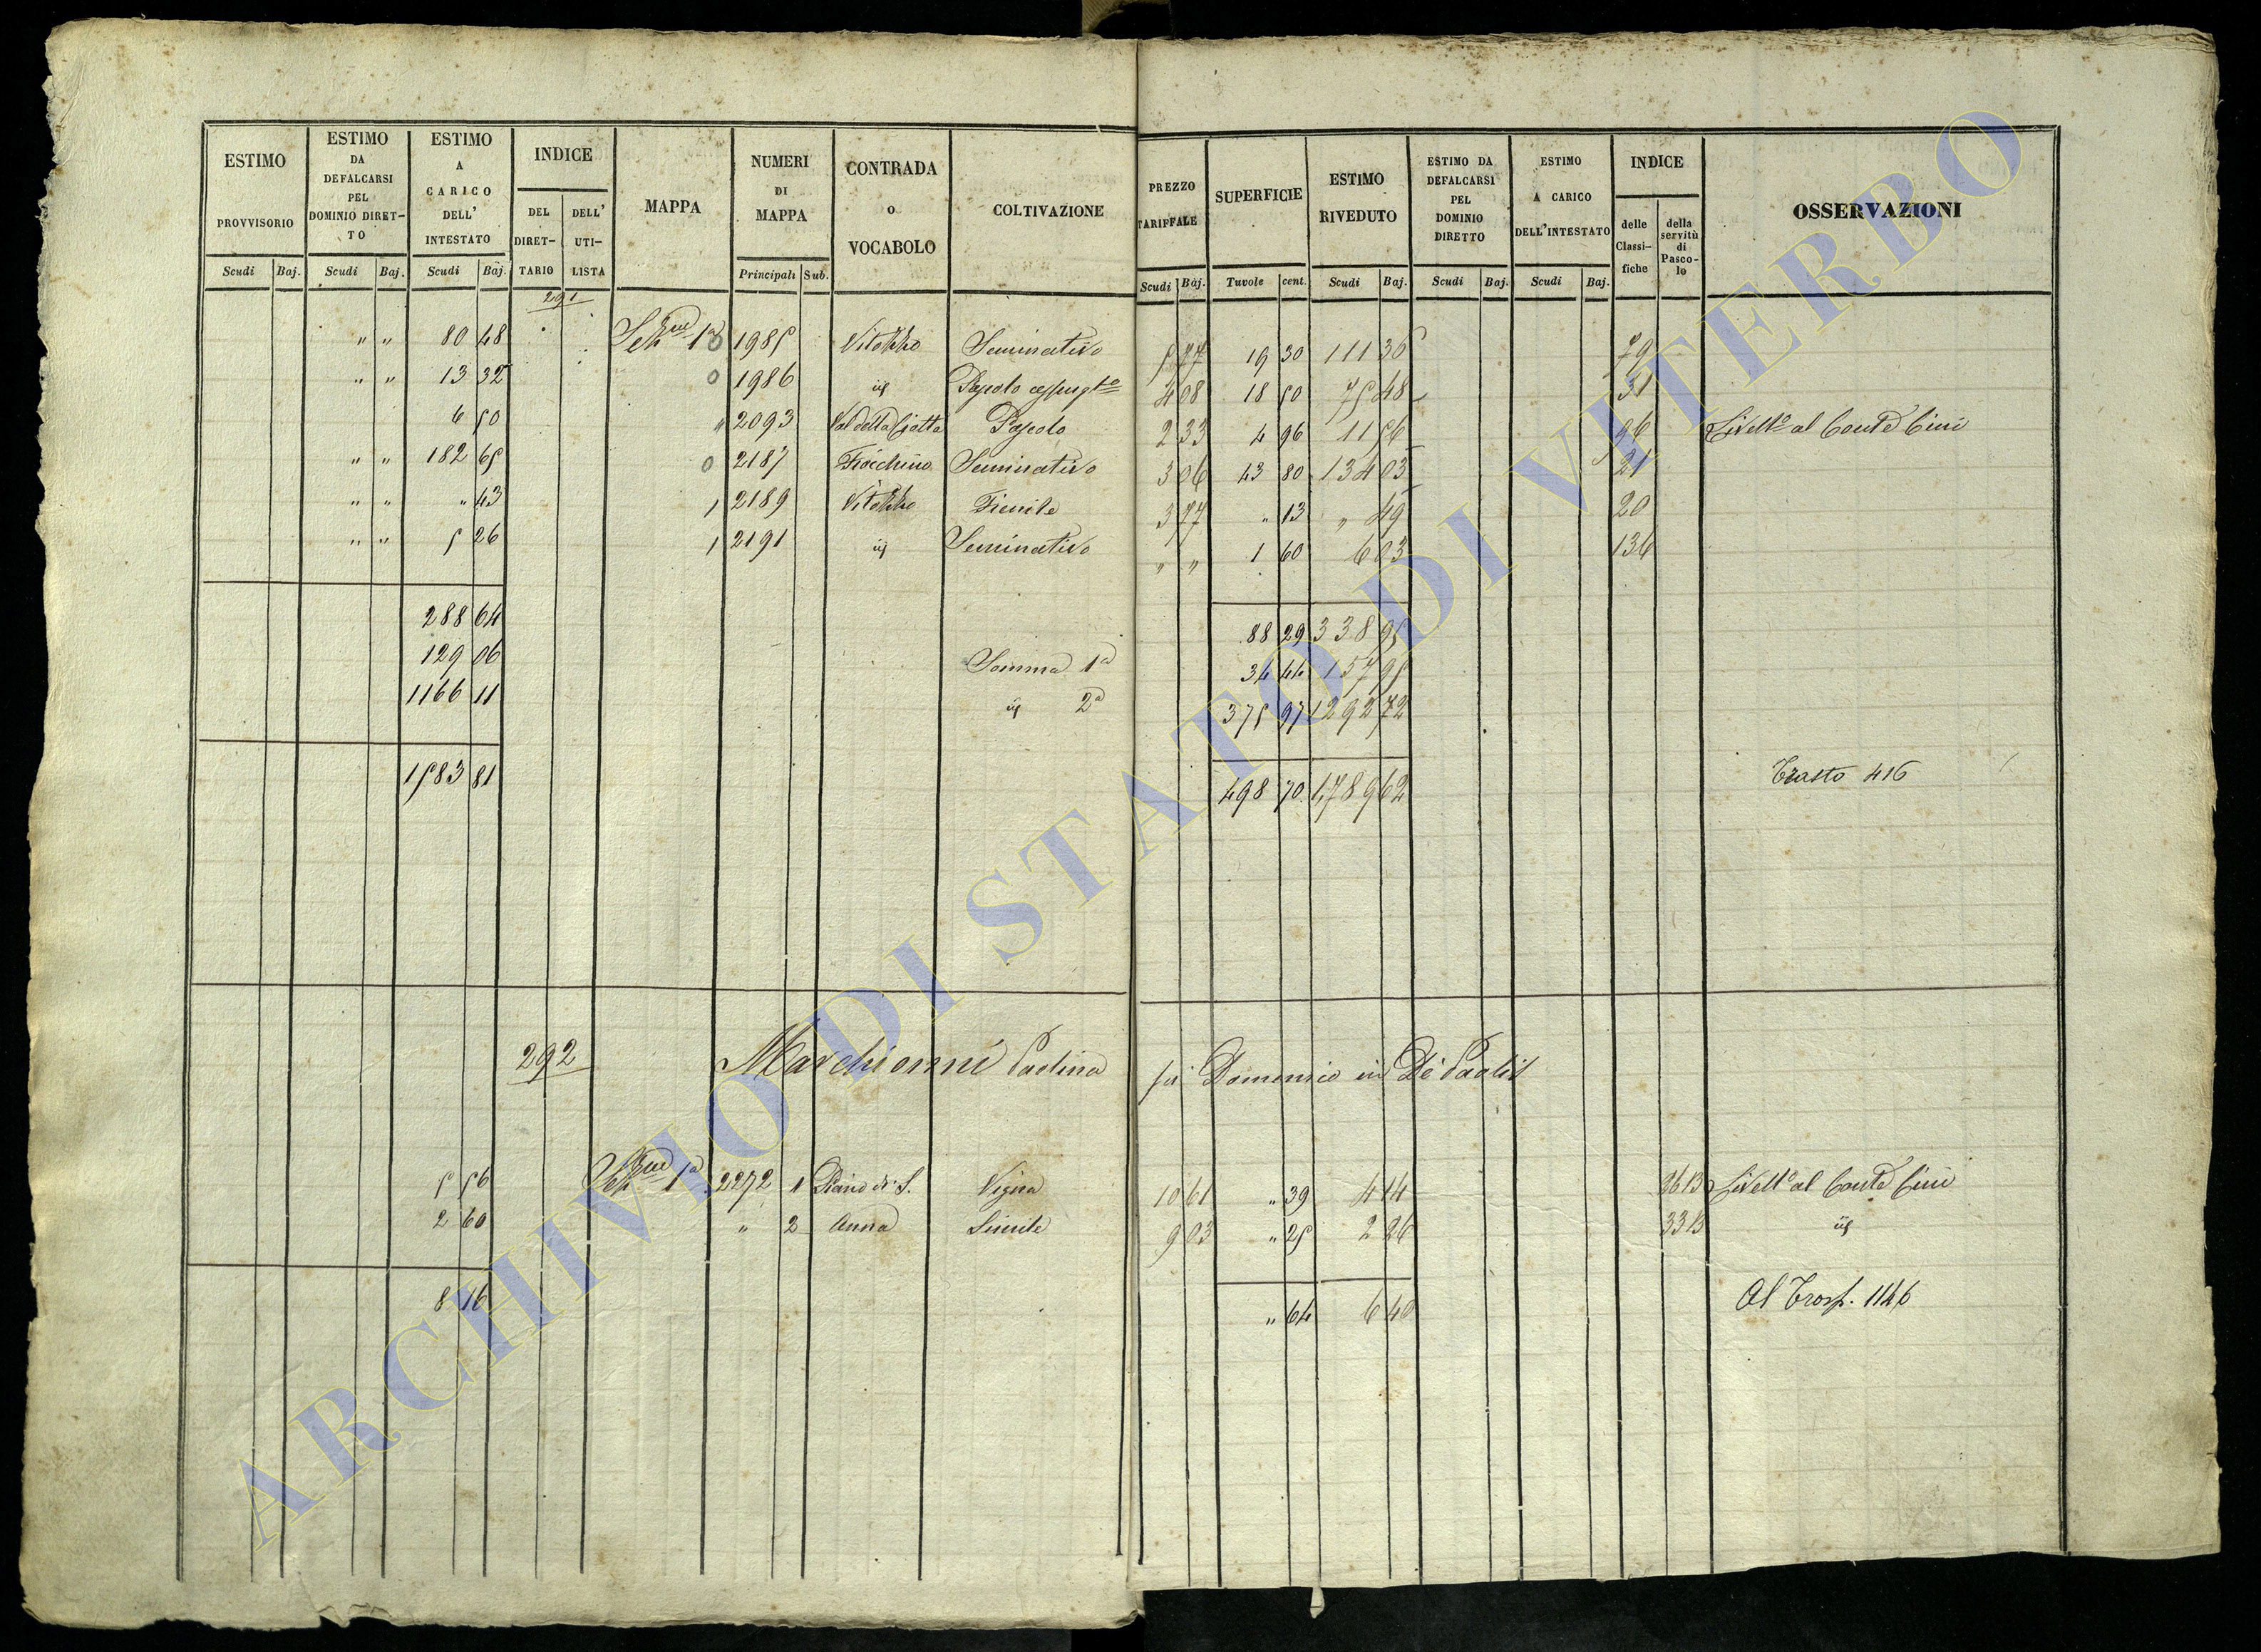 ESTIMO PROVVISORIO Scudi Baj. | ESTIMO DA DEFALCARSI PEL DOMINIO DIRET-TO Scudi Baj. | ESTIMO A CARICO DELL' INTESTATO Scudi Baj. | INDICE DEL DIRET-TARIO DELL' UTI-LISTA | MAPPA | NUMERI DI MAPPA Principali Sub. | CONTRADA o VOCABOLO | COLTIVAZIONE | PREZZO TARIFFALE Scudi Baj. | SUPERFICIE Tavole cent. | ESTIMO RIVEDUTO Scudi Baj. | ESTIMO DA DEFALCARSI PEL DOMINIO DIRETTO Scudi Baj. | ESTIMO A CARICO DELL'INTESTATO Scudi Baj. | INDICE delle Classi-fiche della servitù di Pasco-lo | OSSERVAZIONI
291
" " 80 48 Sez.ne 1a 1985 Vitozzo Seminativo 5 77 19 30 111 36 79
" " 13 32 0 1986 id Pascolo 4 08 18 50 75 48 31
6 50 " 2093 Val della Pascolo 2 33 4 96 11 56 96 Livell.o al Conte Cini
" " 182 65 0 2187 Seminativo 3 06 43 80 134 03 21
" " " 43 1 2189 Vitozzo Fienile 3 77 " 13 " 49 20
" " 5 26 1 2191 id Seminativo " " 1 60 6 03 136
288 64 88 29 338 95
129 06 Somma 1a 34 44 157 95
1166 11 id 2a 375 97 1292 72
1583 81 498 70 1,789 62 Trasto 416
292 Marchionni Paolina fu Domenico in De Paolis
5 56 Sez.ne 1a 2272 1 Piano di S. Vigna 10 61 " 39 4 14 36 B Livell.o al Conte Cini
2 60 " 2 Anna Simile 9 03 " 25 2 26 33 B id
8 16 " 64 6 40 Al Trasp. 1146
ARCHIVIO DI STATO DI VITERBO